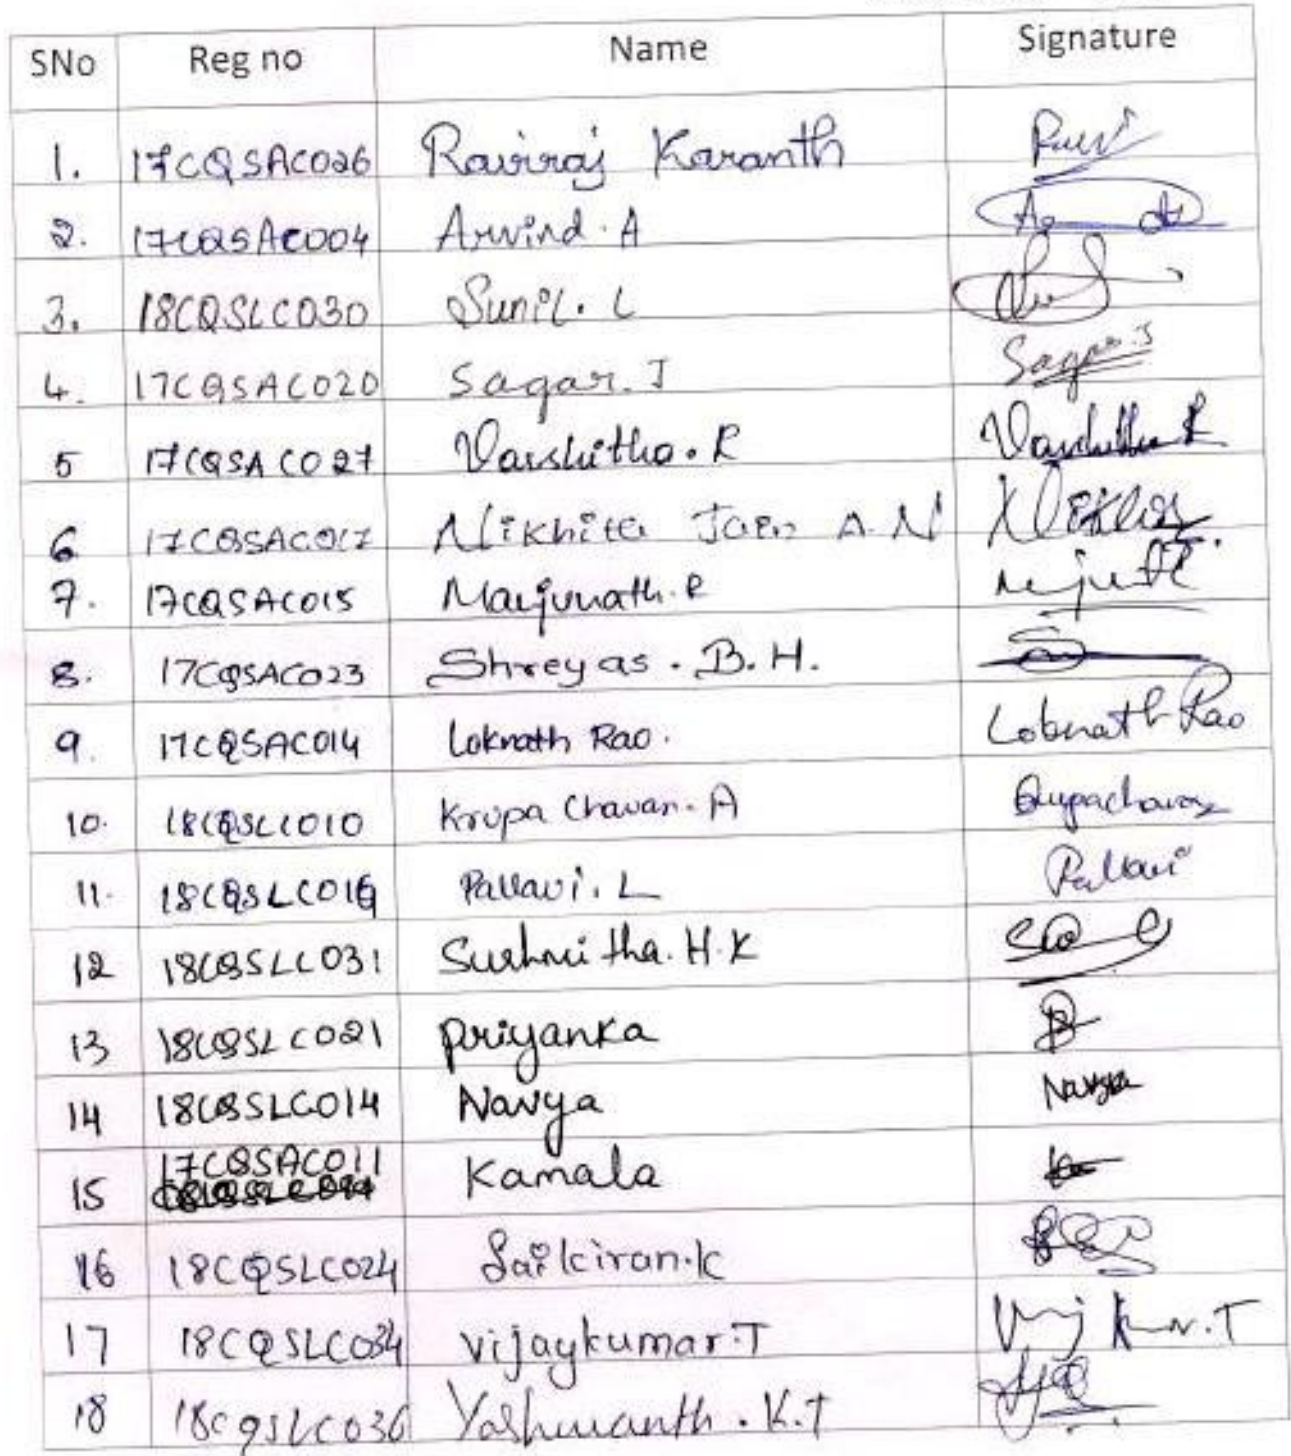 SNo Reg no Name Signature
1. 17CQSAC026 Raviraj Karanth Ravi
2. 17CQSAC004 Arvind. A
3. 18CQSLC030 Sunil. L
4. 17CQSAC020 Sagar. J Sagar. J
5 17CQSAC027 Varshitha. R Varshitha R
6 17CQSAC017 Nikhita Jain A. N
7. 17CQSAC015 Manjunath. R
8. 17CQSAC023 Shreyas. B. H.
9. 17CQSAC014 Loknath Rao. Loknath Rao
10. 18CQSLC010 Krupa Chavan. A Krupachavan
11. 18CQSLC019 Pallavi. L Pallavi
12 18CQSLC031 Sushmitha. H. K
13 18CQSLC021 Priyanka
14 18CQSLC014 Navya Navya
15 17CQSAC011 Kamala
16 18CQSLC024 Saikiran. K
17 18CQSLC034 Vijaykumar. T
18 18CQSLC036 Yashwanth. K. T